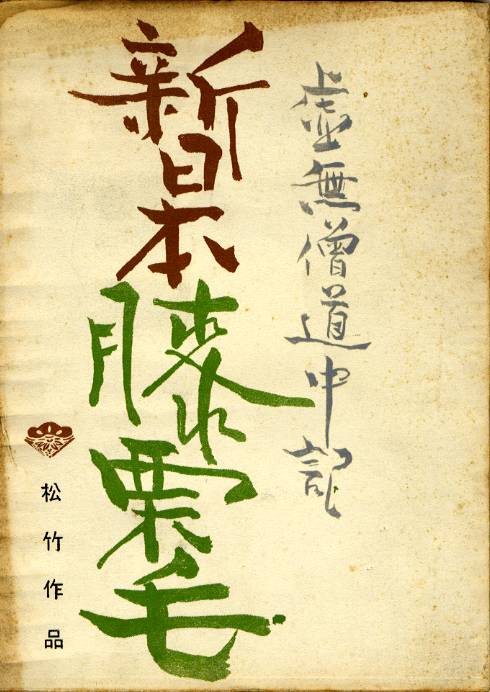 虚無僧道中記
新日本膝栗毛
松竹作品